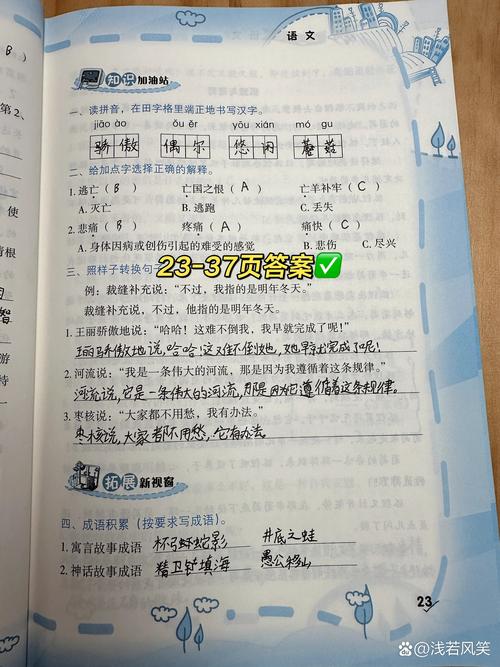 语文
知识加油站
一、读拼音，在田字格里端正地书写汉字。
jiāo ào ǒu ěr yōu xián mó gu
骄傲 偶尔 悠闲 蘑菇
二、给加点字选择正确的解释。
1. 逃亡（B） 亡国之恨（A） 亡羊补牢（C）
A. 灭亡 B. 逃跑 C. 丢失
2. 悲痛（B） 疼痛（A） 痛快（C）
A. 身体因病或创伤引起的难受的感觉 B. 悲伤 C. 尽兴
三、照样子转换句
23-37页答案✅
例：裁缝补充说：“不过，我指的是明年冬天。”
裁缝补充说，不过，他指的是明年冬天。
1. 王丽骄傲地说：“哈哈！这难不倒我，我早就完成了呢！”
王丽骄傲地说，哈哈！这难不倒她，她早就完成了呢！
2. 河流说：“我是一条伟大的河流，那是因为我遵循着这条规律。”
河流说，它是一条伟大的河流，那是因为它遵循着这条规律。
3. 枣核说：“大家都不用愁，我有办法。”
枣核说，大家都不用愁，它有办法。
拓展新视窗
四、成语积累（按要求写成语）。
1. 寓言故事成语 杯弓蛇影 井底之蛙
2. 神话故事成语 精卫填海 愚公移山
23
浅若风笑
B）
第2、
使
背根
智
游
特